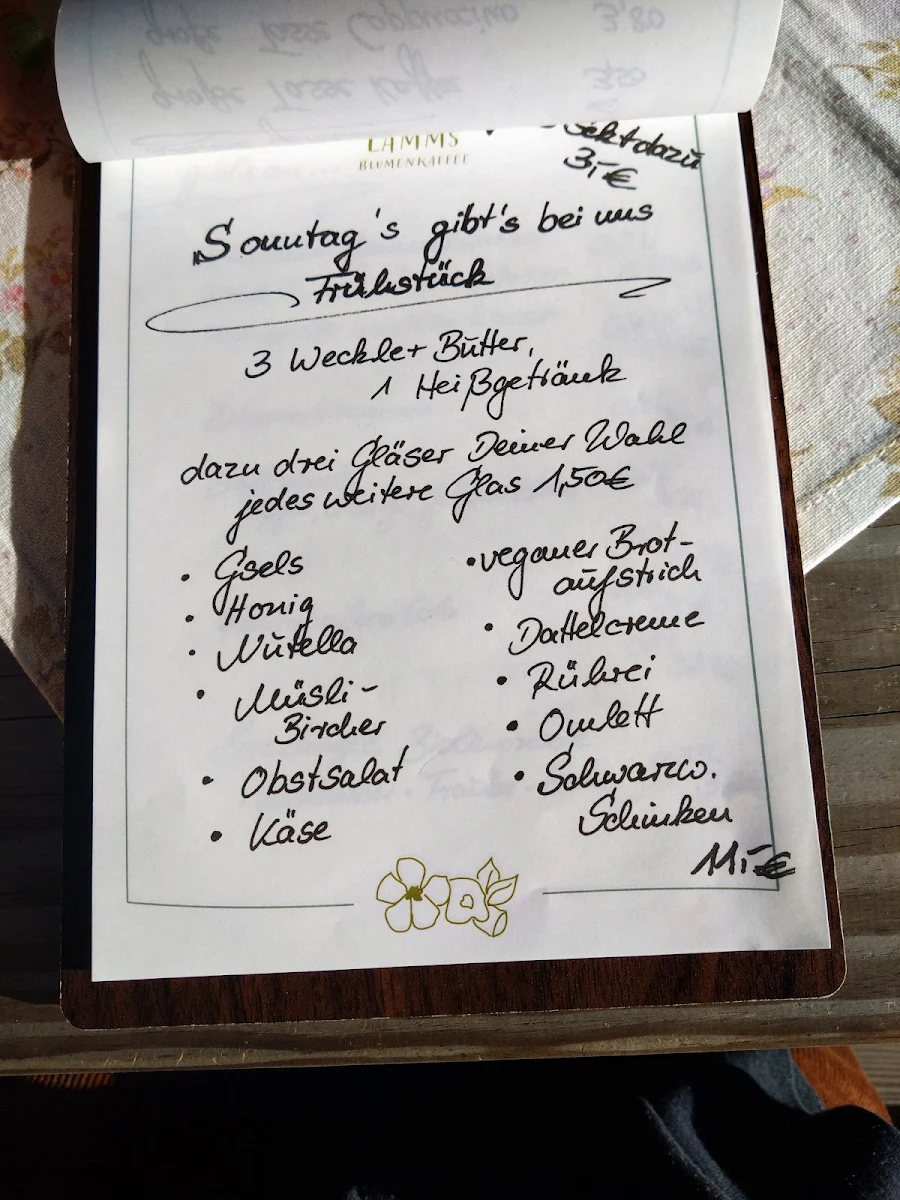 große Tasse Cappuccino 3,80
große Tasse Kaffee 3,50
LAMMS
BLUMENKAFFEE
Sekt dazu
3,-€
"Sonntag's gibt's bei uns
Frühstück
3 Weckle + Butter,
1 Heißgetränk
dazu drei Gläser Deiner Wahl
jedes weitere Glas 1,50€
• Gsels
• Honig
• Nutella
• Müsli-
Bircher
• Obstsalat
• Käse
• veganer Brot-
aufstrich
• Dattelcreme
• Rührei
• Omlett
• Schwarzw.
Schinken
11,-€